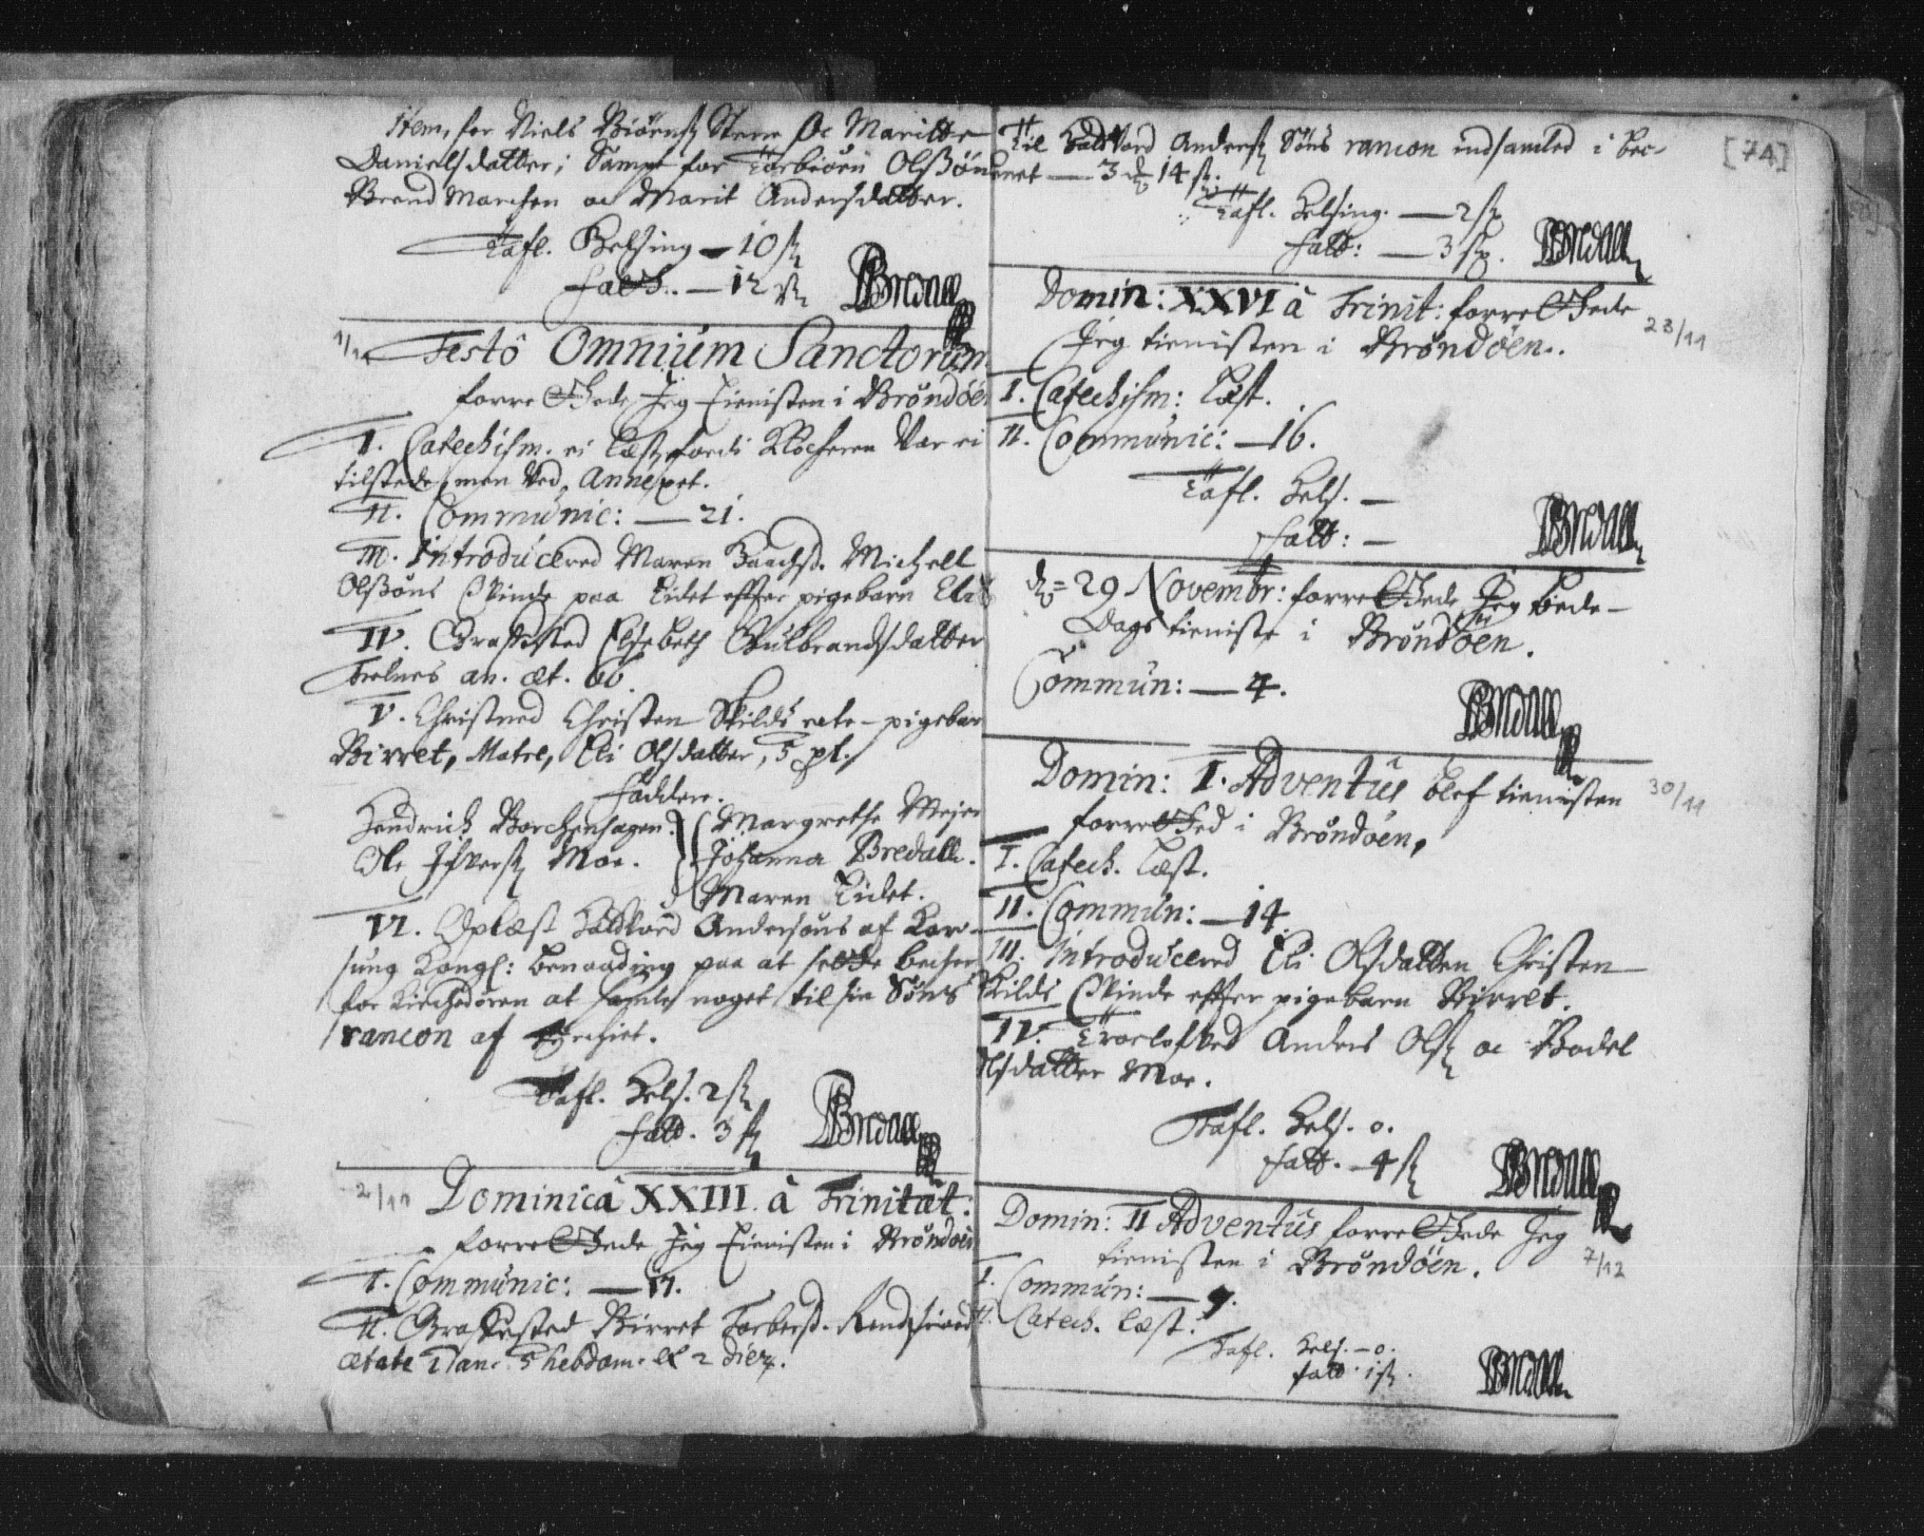 Item, for Niels Biörnß Steen oc Maritte
Danielsdatter; Sampt for Torbiörn Olßön
Brend Marchen oc Marit Andersdatter.
Tafl. Helsing — 10 ß
fald.. — 12 ß Bredall
1/11 Festo Omnium Sanctorum
forrettede Jeg Tienisten i Brøndöen
I. Catechism. ei læst, fordi Klocheren Var ei
tilstede, men Ved Annexet.
II. Communic: — 21.
III. Introducered Maren Michell
Olßöns Qvinde paa Eidet effter pigebarn Eli
IV. Graffested Elsebeth Gulbrandsdatter
Trelnes an. æt. 66.
V. Christned Christen Skilds ecte-pigebarn
Birret, Matre, Eli Olsdatter, 5 pl.
Fadder.
Hendrich Borchenhagen. Margrethe Mejer
Ole Ifversß Moe. Johanna Bredall.
Maren Eidet.
VI. Oplæst Haldvord Andersöns af
Kongl: benaading paa at sette becher
for Kirchedören at samle noget til sin Søns
rancon af
Tafl. Hels. 2 ß
fald. 3 ß Bredall
2/11 Dominica XXIII à Trinitat:
forrettede Jeg Tienisten i Brøndöen
I. Communic: — 17.
II. Graffuested Birret
ætate 1 an. 5 hebdom. et 2 dier.
Til Haldvord Andersß Søns rancon indsamled i bec- [74]
enet — 3 dr 14 ß.
Tafl. Helsing. — 2 ß
fald: — 3 ß. Bredall
Domin: XXVI à Trinit: forrettede 23/11
Jeg tienisten i Brøndöen.
I. Catechism: læst.
II. Communic: — 16.
Tafl. Hels. —
fald: — Bredall
d. 29 Novembr: forrettede Jeg bede-
Dags tieniste i Brøndöen.
Commun: — 4.
Bredall
Domin: I. Adventus blef tienisten 30/11
forretted i Brøndöen.
I. Catech. læst.
II. Commun: — 14.
III. Introducered Eli Olsdatter Christen
Skilds Qvinde effter pigebarn Birret.
IV. Troelofved Anders Olsß oc Bodel
Olsdatter Moe.
Tafl. Hels. o.
fald. — 4 ß Bredall
Domin: II Adventus forrettede Jeg
tienisten i Brøndöen. 7/12
I. Commun: — 9.
II. Catech. læst.
Tafl. Hels. — o.
fald. 1 ß. Bredall